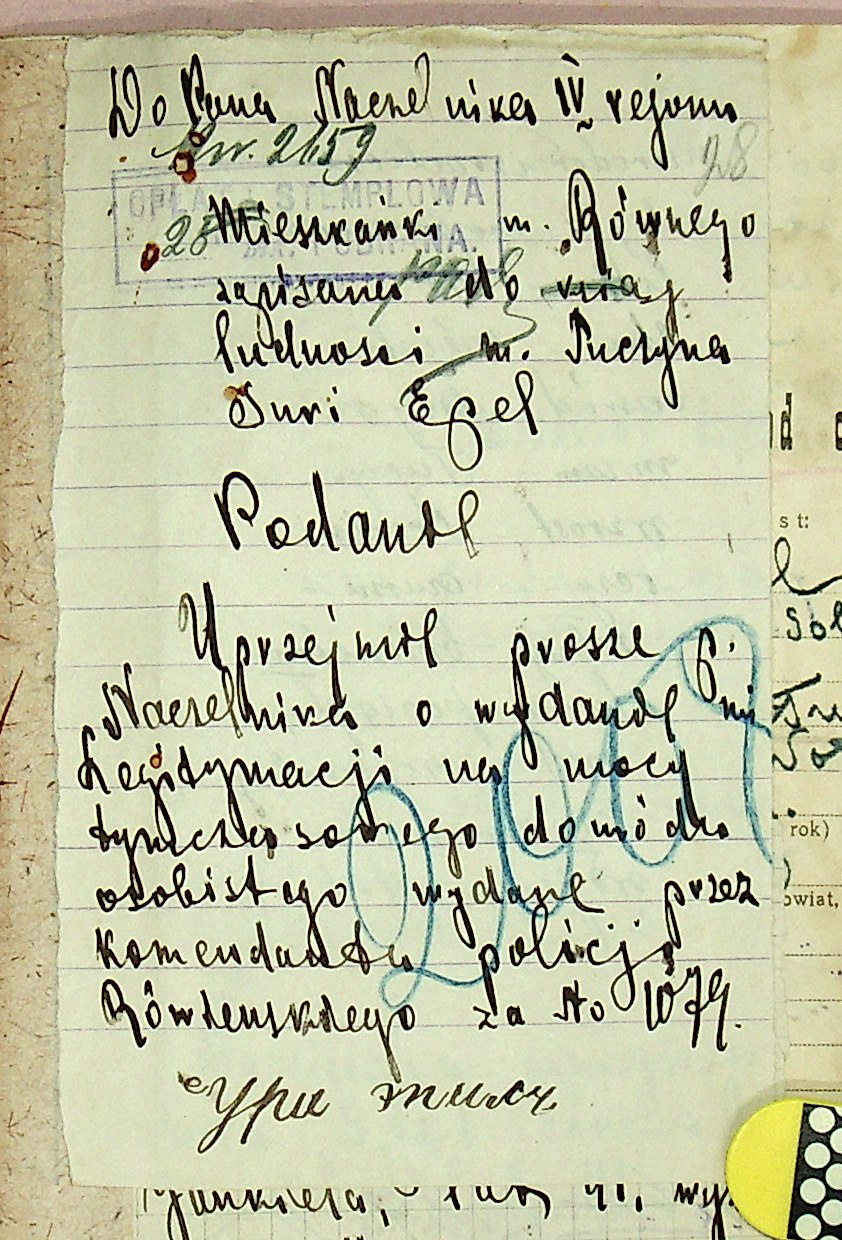 Do Pana Naczelnika IV rejonu
Nr. 2159
28
OPŁATA STEMPLOWA
28
POBRANA.
Mieszkańki m. Równego
zapisana do
ludnosci m. Tuczyna
Suri Egel
Podanie
Uprzejmie prosze p.
Naczelnika o wydanie mi
Legitymacji na mocy
tymczasowego dowódu
osobistego wydane przez
komendanta policji
Rówienskiego za No 1079.
Ури
st:
rok)
owiat,
Jankiela,
41, wy